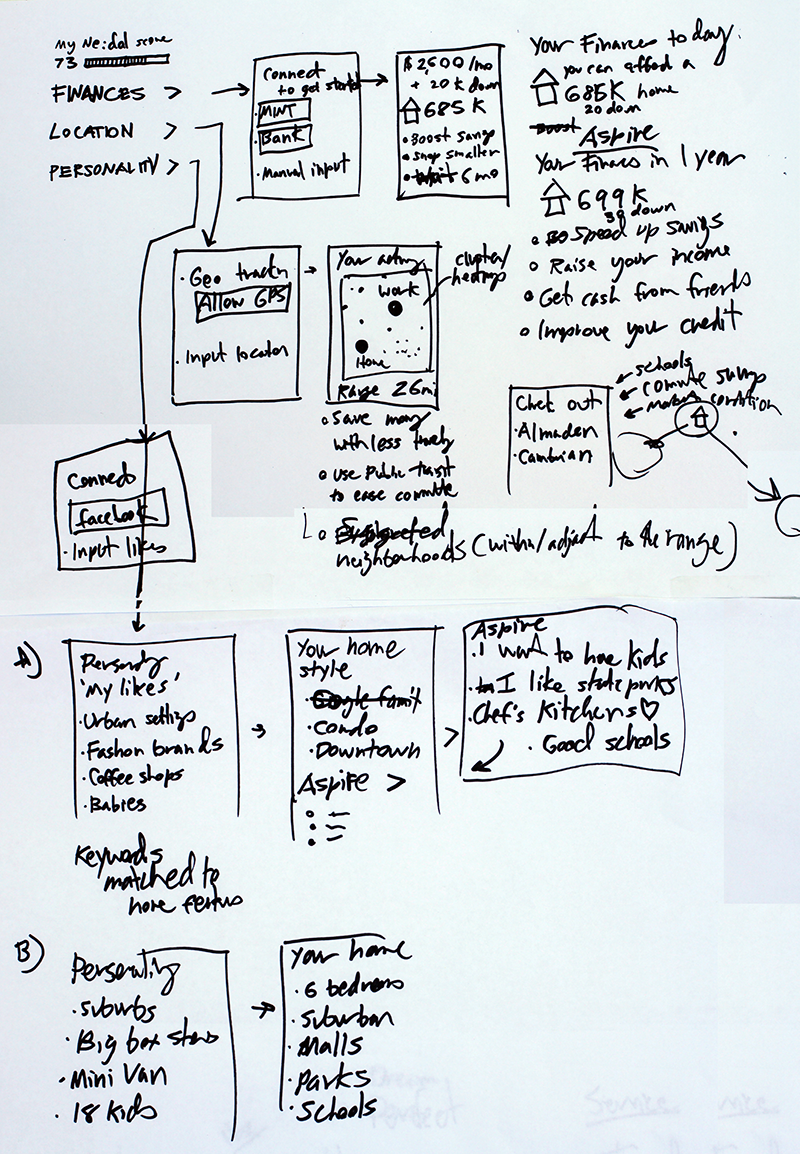 My Ne:dal score
73
FINANCES >
LOCATION >
PERSONALITY >
Connect
to get started
MINT
Bank
• Manual input
$2,600/mo
+ 20k down
685K
• Boost savings
• Shop smaller
• Wait 6 mo
Your Finances today.
you can afford a
685K home
20 down
Boost
Aspire
Your Finances in 1 year
699K
39 down
• Speed up savings
• Raise your income
• Get cash from friends
• Improve your credit
• Geo trackn
Allow GPS
• Input locator
Your activity
Work
Home
Range 26mi
cluster/
heatmap
• Save money
with less timely
• Use Public transit
to ease commute
• Suggested
neighborhoods (within/adjact to the range)
schools
commute savings
market condition
Check out
• Almaden
• Cambrian
Connect
facebook
• Input likes
A)
Personality
'My likes'
• Urban settings
• Fashon brands
• Coffee shops
• Babies
Keywords
matched to
home features
Your home
style
• Single family
• Condo
• Downtown
Aspire >
Aspire
• I want to have kids
• I like state parks
• Chef's Kitchens♡
• Good schools
B)
Personality
• Suburbs
• Big box stores
• Mini Van
• 18 kids
Your home
• 6 bedrooms
• Suburban
• Malls
• Parks
• Schools